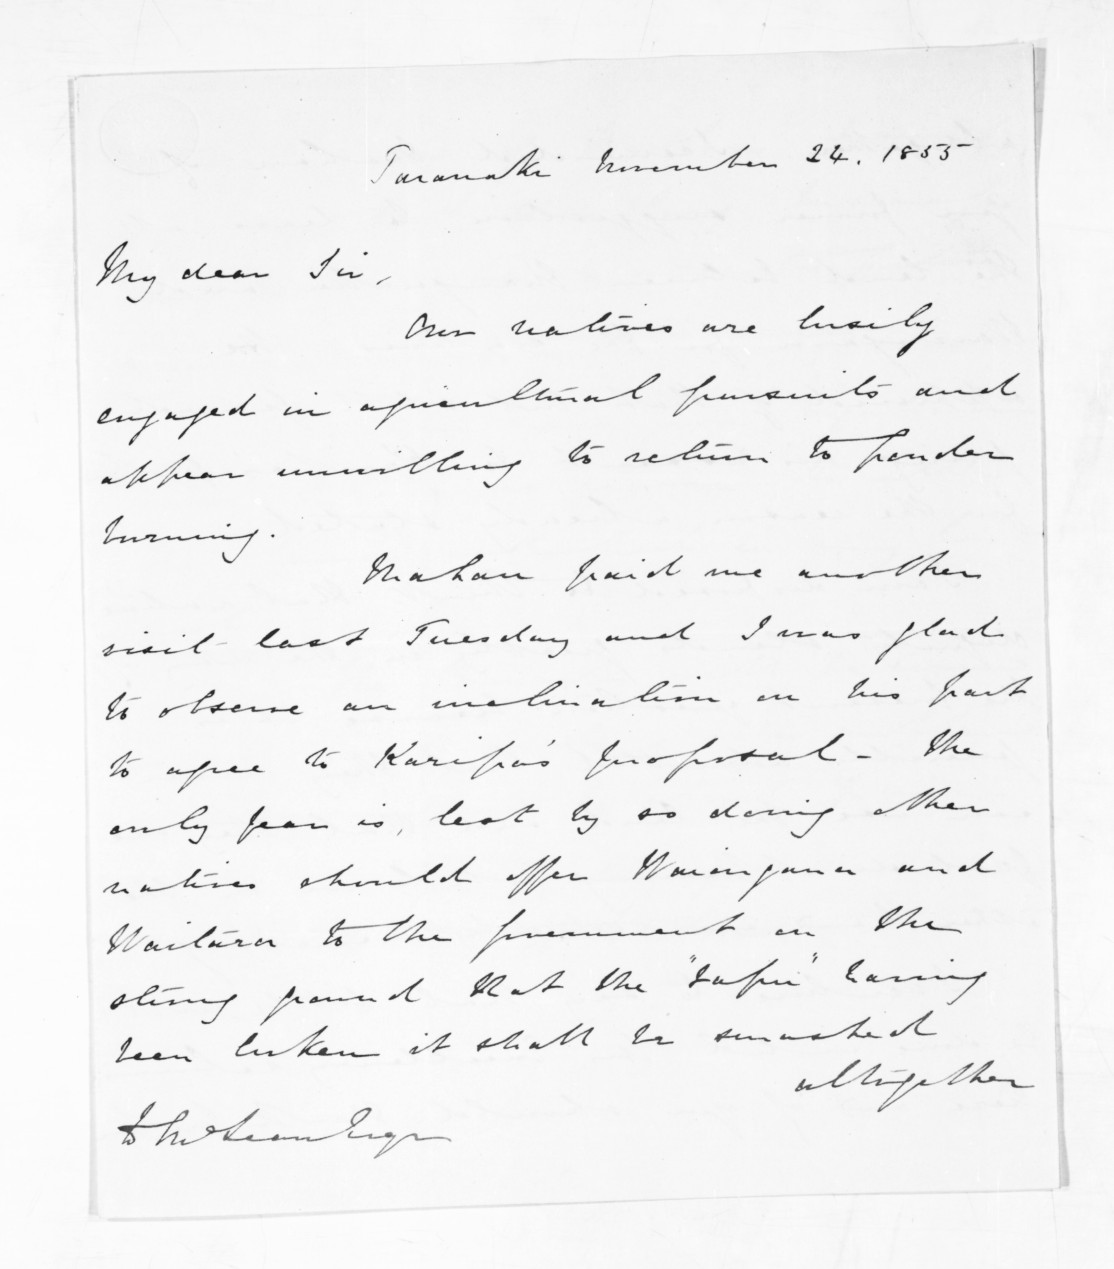 Taranaki November 24. 1855
My dear Sir,
Our natives are busily
engaged in agricultural pursuits and
appear unwilling to return to powder
burning.
Mahau paid me another
visit last Tuesday and I was glad
to observe an inclination on his part
to agree to Karipa's proposal - The
only fear is, lest by so doing other
natives should offer Waiongana and
Waitara to the government on the
strong ground that the "tapu" having
been broken it shall be smashed
altogether
McLean Esqr